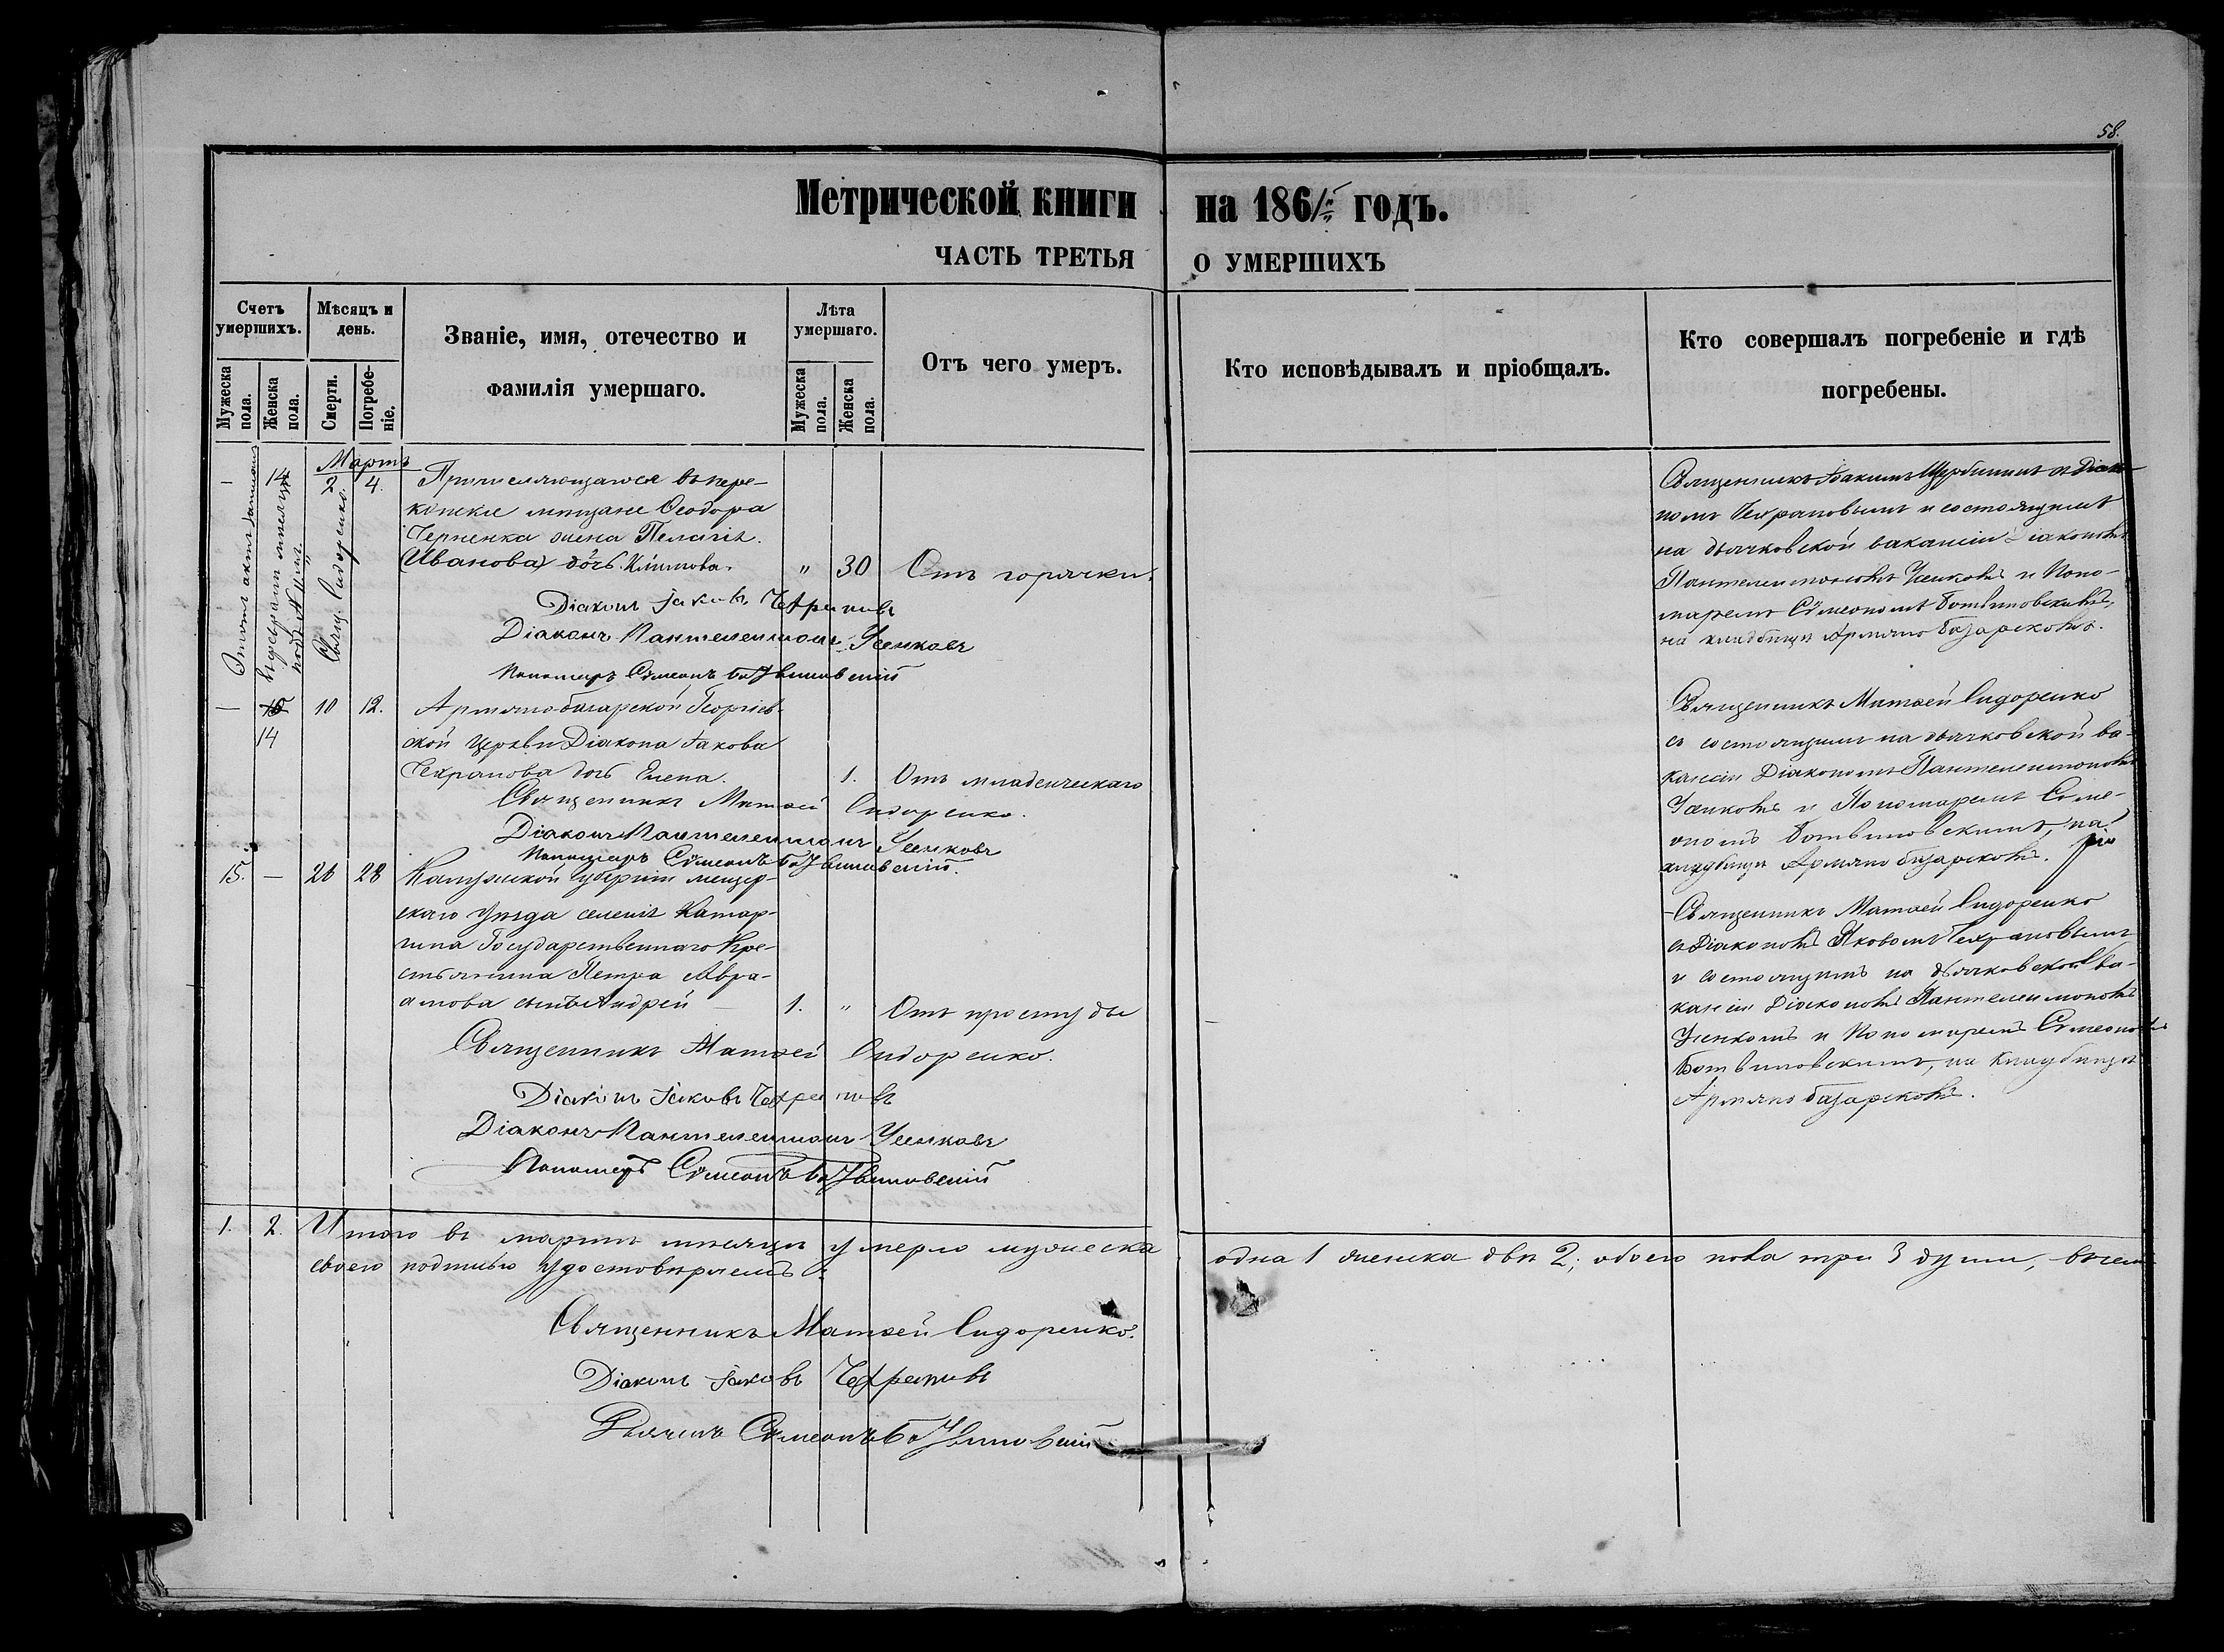 58.
Метрической книги на 186 годъ.
ЧАСТЬ ТРЕТЬЯ О УМЕРШИХЪ
Счетъ умершихъ.
Мужеска пола.
Женска пола.
Мѣсяцъ и день.
Смерти.
Погребеніе.
Званіе, имя, отечество и
фамилія умершаго.
Лѣта умершаго.
Мужеска пола.
Женска пола.
Отъ чего умеръ.
Кто исповѣдывалъ и пріобщалъ.
Кто совершалъ погребеніе и гдѣ
погребены.
Мартъ
— 14 2 4.
въ пере-
копскіе мещане Ѳеодора
жена Пелагія
Иванова дочь Климова. " 30 Отъ горячки.
Діаконъ Іаковъ Чехрановъ
Діаконъ Пантелеимонъ Усенковъ
Пономарь Сѵмеонъ Ботвиновскій
Этотъ актъ записанъ
подъ №
Свящ. Сидоренко.
Священникъ Іоакимъ съ Діако-
номъ Чехрановымъ и состоящимъ
на дьячковской вакансіи Діакономъ
Пантелеимономъ Усенковъ и Поно-
маремъ Сѵмеономъ Ботвиновскимъ,
на кладбищѣ Армяно Базарскомъ.
— 10 12. Армянобазарской Георгіев-
14
ской церкви Діакона Іакова
Чехранова дочь Елена. 1. Отъ младенческаго
Священникъ Матѳей Сидоренко.
Діаконъ Пантелеимонъ Усенковъ
Пономарь Сѵмеонъ Ботвиновскій.
Священникъ Матѳей Сидоренко
съ состоящимъ на дьячковской ва-
кансіи Діакономъ Пантелеимономъ
Усенковъ и Пономаремъ Сѵме-
ономъ Ботвиновскимъ, на
кладбищѣ Армяно базарскомъ.
15. — 26 28 Калужской губерніи мещер-
скаго уѣзда селенія Катар-
гина Государственнаго Кре-
стьянина Петра Авра-
амова сынъ Андрей — 1. " Отъ простуды
Священникъ Матѳей Сидоренко.
Діаконъ Іаковъ Чехрановъ
Діаконъ Пантелеимонъ Усенковъ
Пономарь Сѵмеонъ Ботвиновскій
Священникъ Матѳей Сидоренко
съ Діакономъ Яковомъ Чехрановымъ
и состоящимъ на дьячковской ва-
кансіи Діакономъ Пантелеимономъ
Усенкомъ и Пономаремъ Сѵмеономъ
Ботвиновскимъ, на Кладбищѣ
Армяно базарскомъ.
1. 2. Итого въ мартѣ мѣсяцѣ умерло мужеска одна 1 женска двѣ 2; обоего пола три 3 души, въ чемъ
своею подписью удостовѣряемъ:
Священникъ Матѳей Сидоренко.
Діаконъ Іаковъ Чехрановъ
Дьячекъ Сѵмеонъ Ботвиновскій